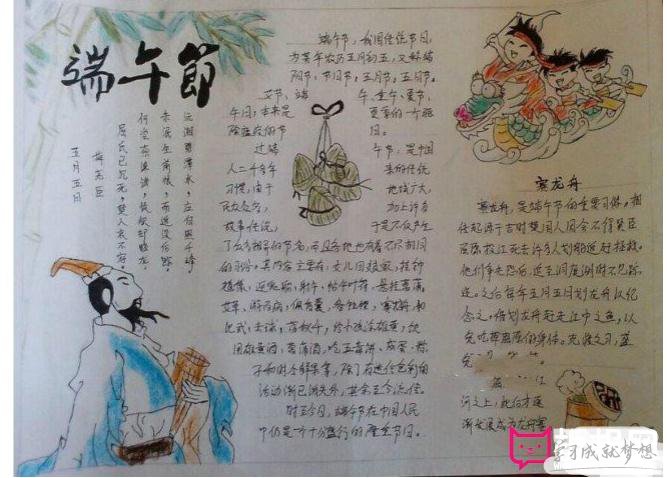 端午節
五月五日
梅尧臣
屈氏已沉死，楚人哀不容。
何尝奈谗谤，徒欲却蛟龙。
未泯生前恨，而追没后踪。
沅湘碧潭水，应自照千峰。
端午节，我国传统节日，
为每年农历五月初五，又称端
阳节、午日节、五月节、五日节、
艾节、端
午、重午、夏节。
午日，本来是
夏季的一个驱
除瘟疫的节
日。
过端
午节，是中国
人二千多年
来的传统
习惯，由于
地域广大，
民族众多，
加上许多
故事传说，
于是不仅产生
了众多相异的节名，而且各地也有着不尽相同
的习俗。其内容主要有：女儿回娘家，挂钟
馗像，迎鬼船、躲午，帖午叶符，悬挂菖蒲、
艾草，游百病，佩香囊，备牲醴，赛龙舟，比
武，击球，荡秋千，给小孩涂雄黄，饮
用雄黄酒、菖蒲酒，吃五毒饼、咸蛋、粽
子和时令鲜果等，除了有迷信色彩的
活动渐已消失外，其余至今流传
时至今日，端午节在中国人民
中仍是一个十分盛行的隆重节日。
赛龙舟
赛龙舟，是端午节的重要习俗。相
传起源于古时楚国人因舍不得贤臣
屈原投江死去许多人划船追赶拯救。
他们争先恐后，追至洞庭湖时不见踪
迹。之后每年五月五日划龙舟以纪
念之。借划龙舟赶走江中之鱼，以
免吃掉屈原的身体。竞渡之习，盛
河之上，此后才逐
渐发展成为龙舟赛
学习成就梦想